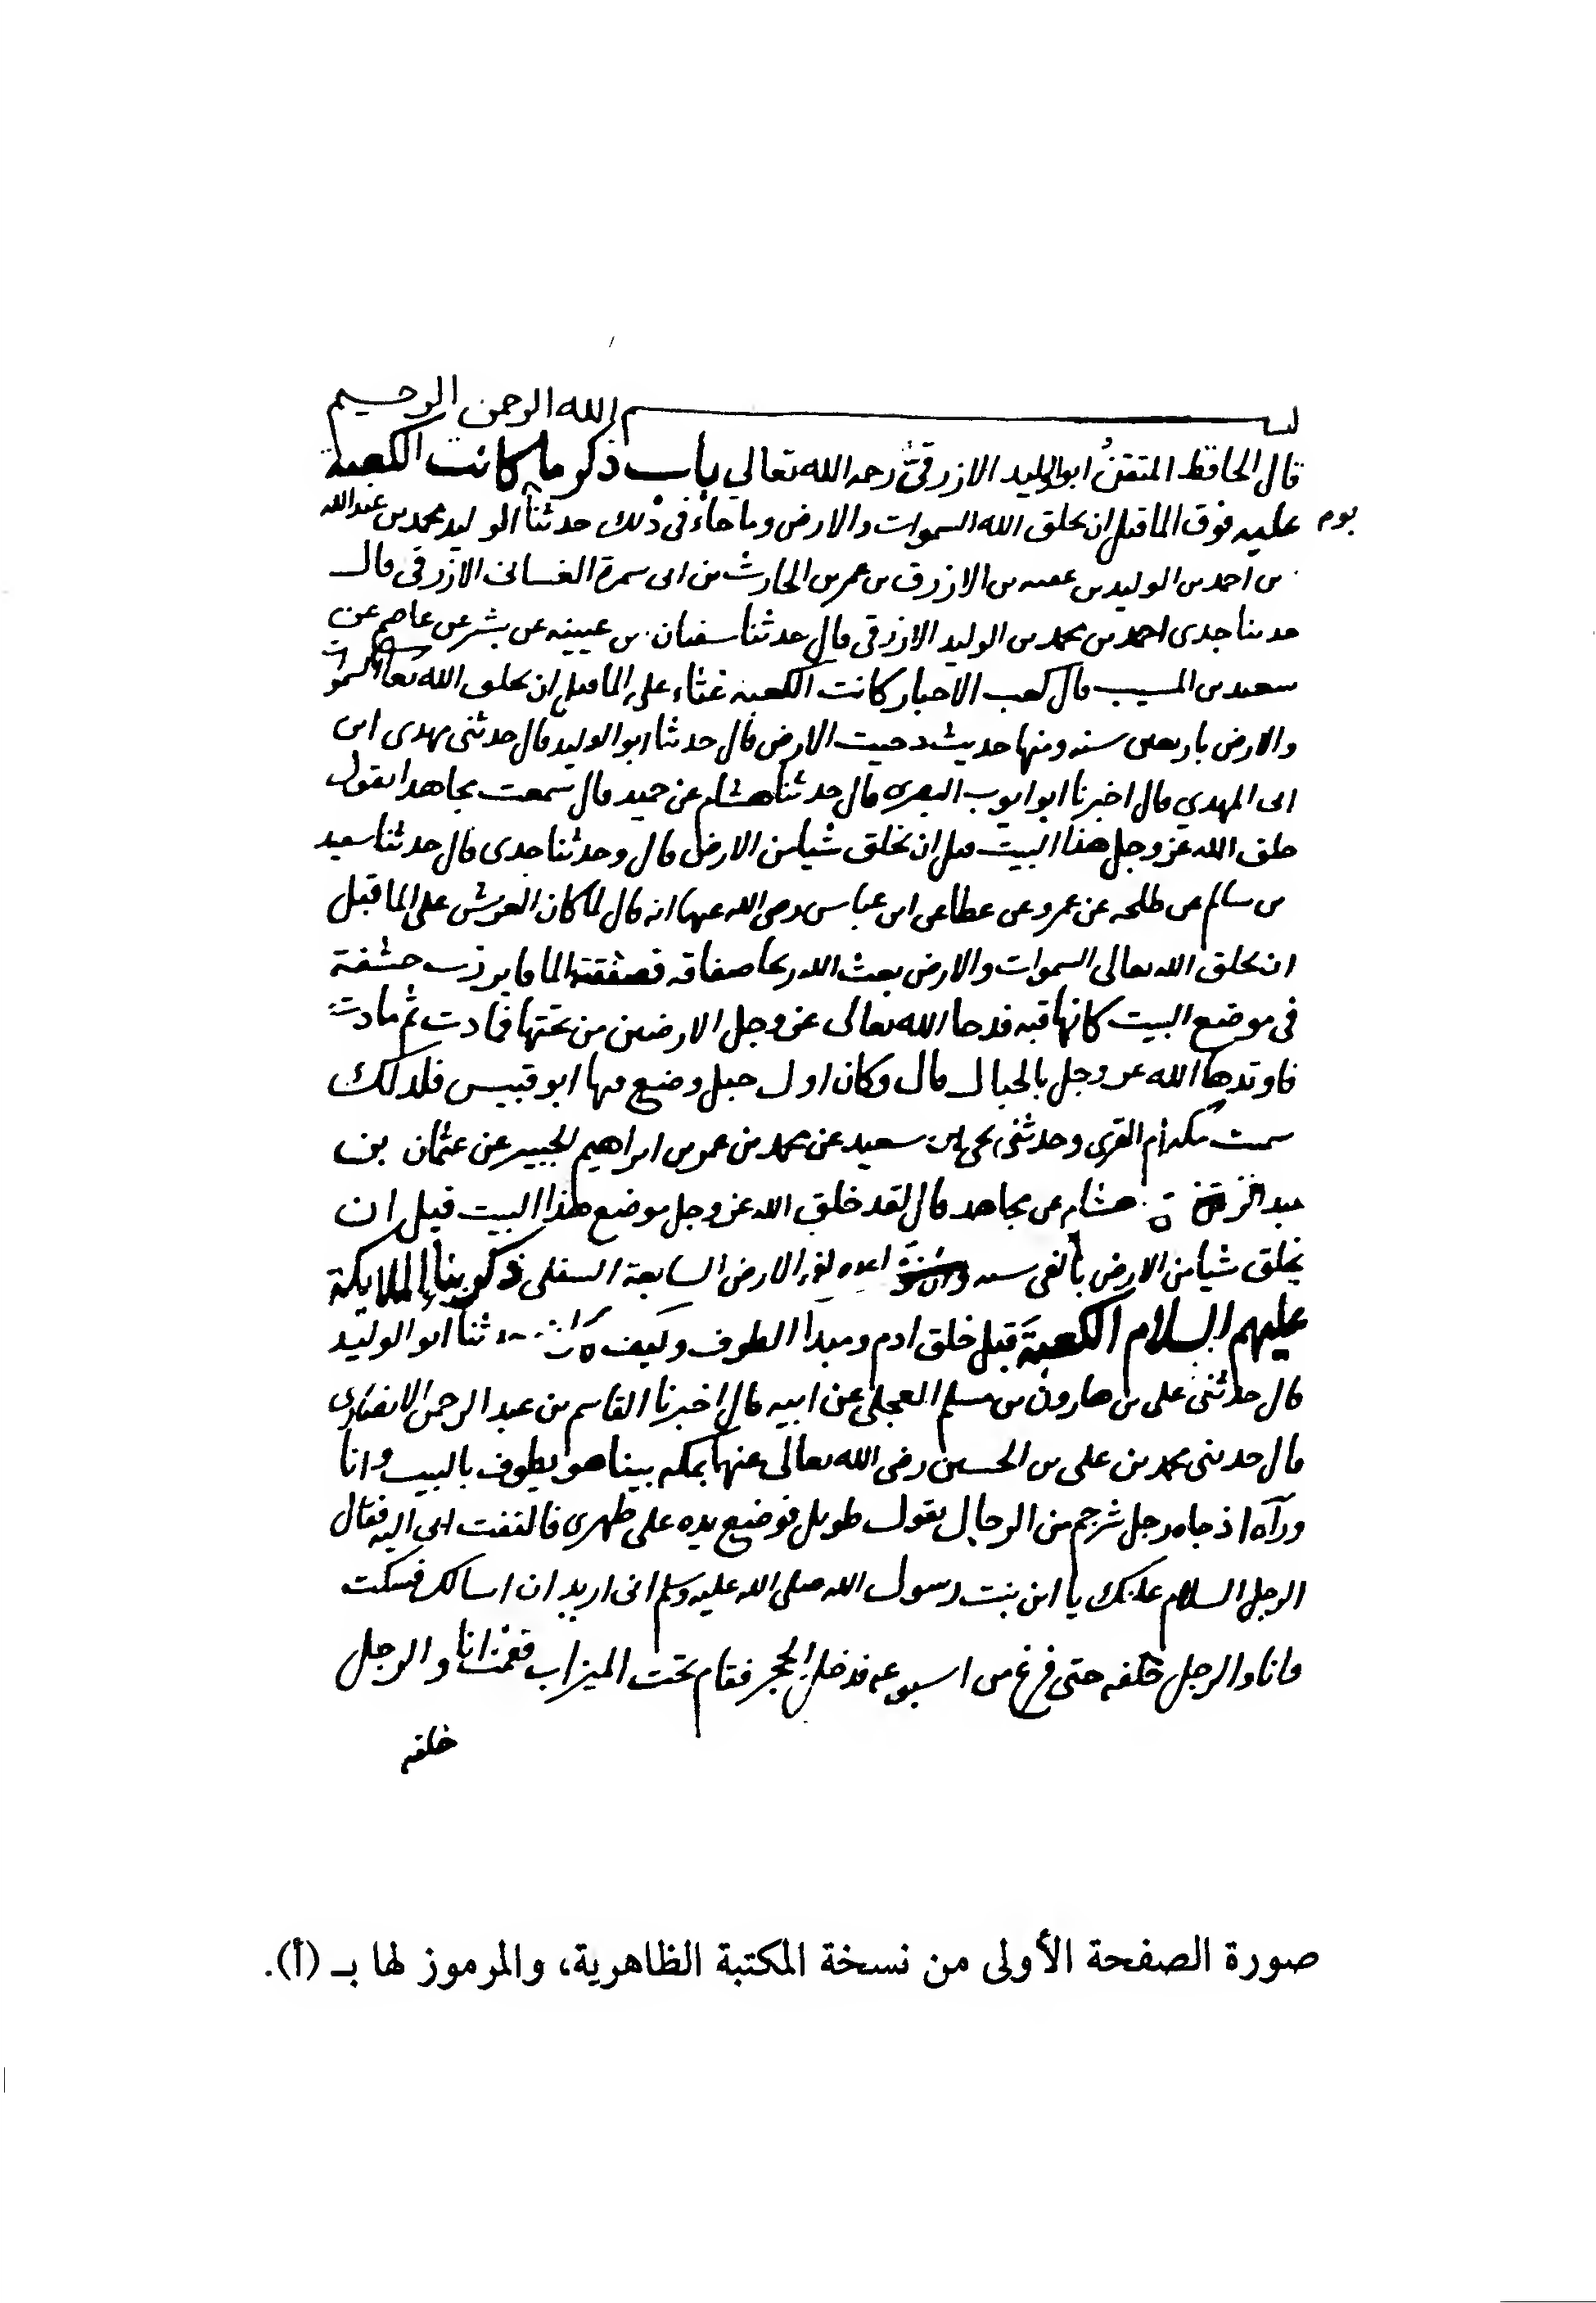 بسم الله الرحمن الرحيم
قال الحافظ المتقن ابوالوليد الازرقي رحمه الله تعالي باب ذكر ما كانت الكعبة
عليه فوق الما قبل ان يخلق الله السموات والارض وما جاء في ذلك حدثنا ابو الوليد محمد بن عبد الله
بن احمد بن الوليد بن عقبه بن الازرق بن عمر بن الحارث بن ابى سمرة الغسانى الازرقى قال
حدثنا جدى احمد بن محمد بن الوليد الازرقى قال حدثنا سفيان بن عيينه عن بشر عن عاصم عن
سعيد بن المسيب قال كعب الاحبار كانت الكعبه غثاء على الما قبل ان يخلق الله تعالى السموات
والارض باربعين سنه ومنها حديث دحيت الارض قال حدثنا ابو الوليد قال حدثنى مهدى ابن
ابى المهدي قال اخبرنا ابو ايوب البصرى قال حدثنا هشام عن حميد قال سمعت مجاهدا يقول
خلق الله عز وجل هذا البيت قبل ان يخلق شيا من الارض قال وحدثنا جدى قال حدثنا سعيد
بن سالم عن طلحه عن عمرو عن عطا عن ابن عباس رضى الله عنهما انه قال لما كان العرش على الما قبل
ان يخلق الله تعالى السموات والارض بعث الله ريحا صفاقه فصفقت الما فابرزت حشفة
في موضع البيت كانها قبه فدحا الله تعالى عز وجل الارضين من تحتها فمادت ثم مادت
فاوتدها الله عز وجل بالجبال قال وكان اول جبل وضع فيها ابو قبيس فلذلك
سميت مكه ام القرى وحدثنى يحى ابن سعيد عن محمد بن عمر بن ابراهيم الجبير عن عثمان بن
عبد الرحمن هشام عن مجاهد قال لقد خلق الله عز وجل موضع هذا البيت قبل ان
يخلق شيا من الارض بالفى سنه لفى الارض السابعة السفلى ذكر بناء الملايكة
عليهم السلام الكعبة قبل خلق ادم ومبدا الطوف وكيف كان ثنا ابو الوليد
قال حدثنى على بن هارون بن مسلم العجلى عن ابيه قال اخبرنا القاسم بن عبد الرحمن الانصارى
قال حدثنى محمد بن على بن الحسين رضى الله تعالى عنهما بمكه بينا هو يطوف بالبيت وانا
ورآه اذ جاه رجل شرجم من الرجال يقول طويل فوضع يده على ظهرى فالتفت ابى اليه فقال
الرجل السلام عليك يا ابن بنت رسول الله صلى الله عليه وسلم انى اريد ان اسالك فسكت
وانا والرجل خلفه حتى فرغ من اسبوعه فدخل الحجر فقام تحت الميزاب فقمت انا والرجل
خلفه
صورة الصفحة الأولى من نسخة المكتبة الظاهرية، والمرموز لها بـ (أ).